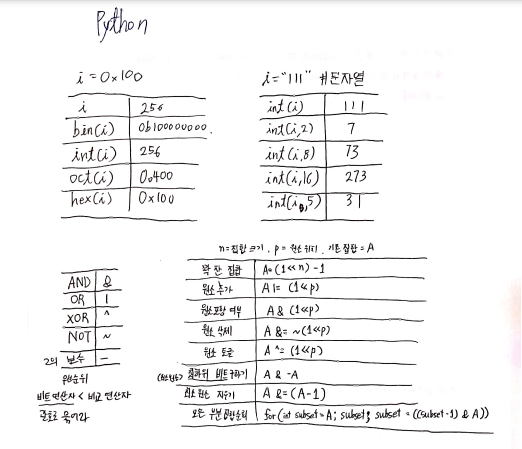 Python
i = 0x100
i | 256
bin(i) | 0b100000000.
int(i) | 256
oct(i) | 0o400
hex(i) | 0x100
i="111" #문자열
int(i) | 111
int(i,2) | 7
int(i,8) | 73
int(i,16) | 273
int(i,5) | 31
AND | &
OR | |
XOR | ^
NOT | ~
2의 보수 | -
우선순위
비트연산자 < 비교 연산자
괄호로 묶어라
n=집합 크기, p = 원소 위치, 기존 집합 = A
꽉 찬 집합 | A=(1<<n) -1
원소 추가 | A |= (1<<p)
원소포함 여부 | A & (1<<p)
원소 삭제 | A &= ~(1<<p)
원소 토글 | A ^= (1<<p)
(최소원소) 최하위 비트 구하기 | A & -A
최소 원소 지우기 | A &=(A-1)
모든 부분집합 순회 | for(int subset=A; subset; subset = ((subset-1) & A))